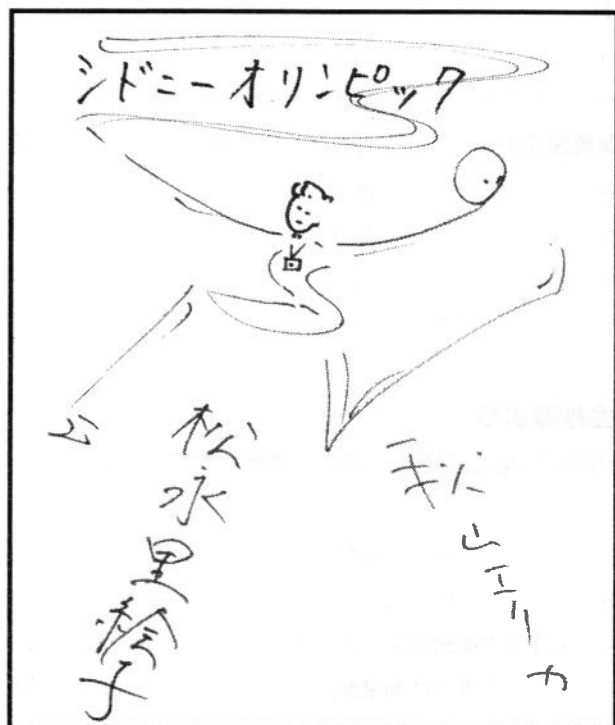 シドニーオリンピック
秋山エリカ
松永里絵子